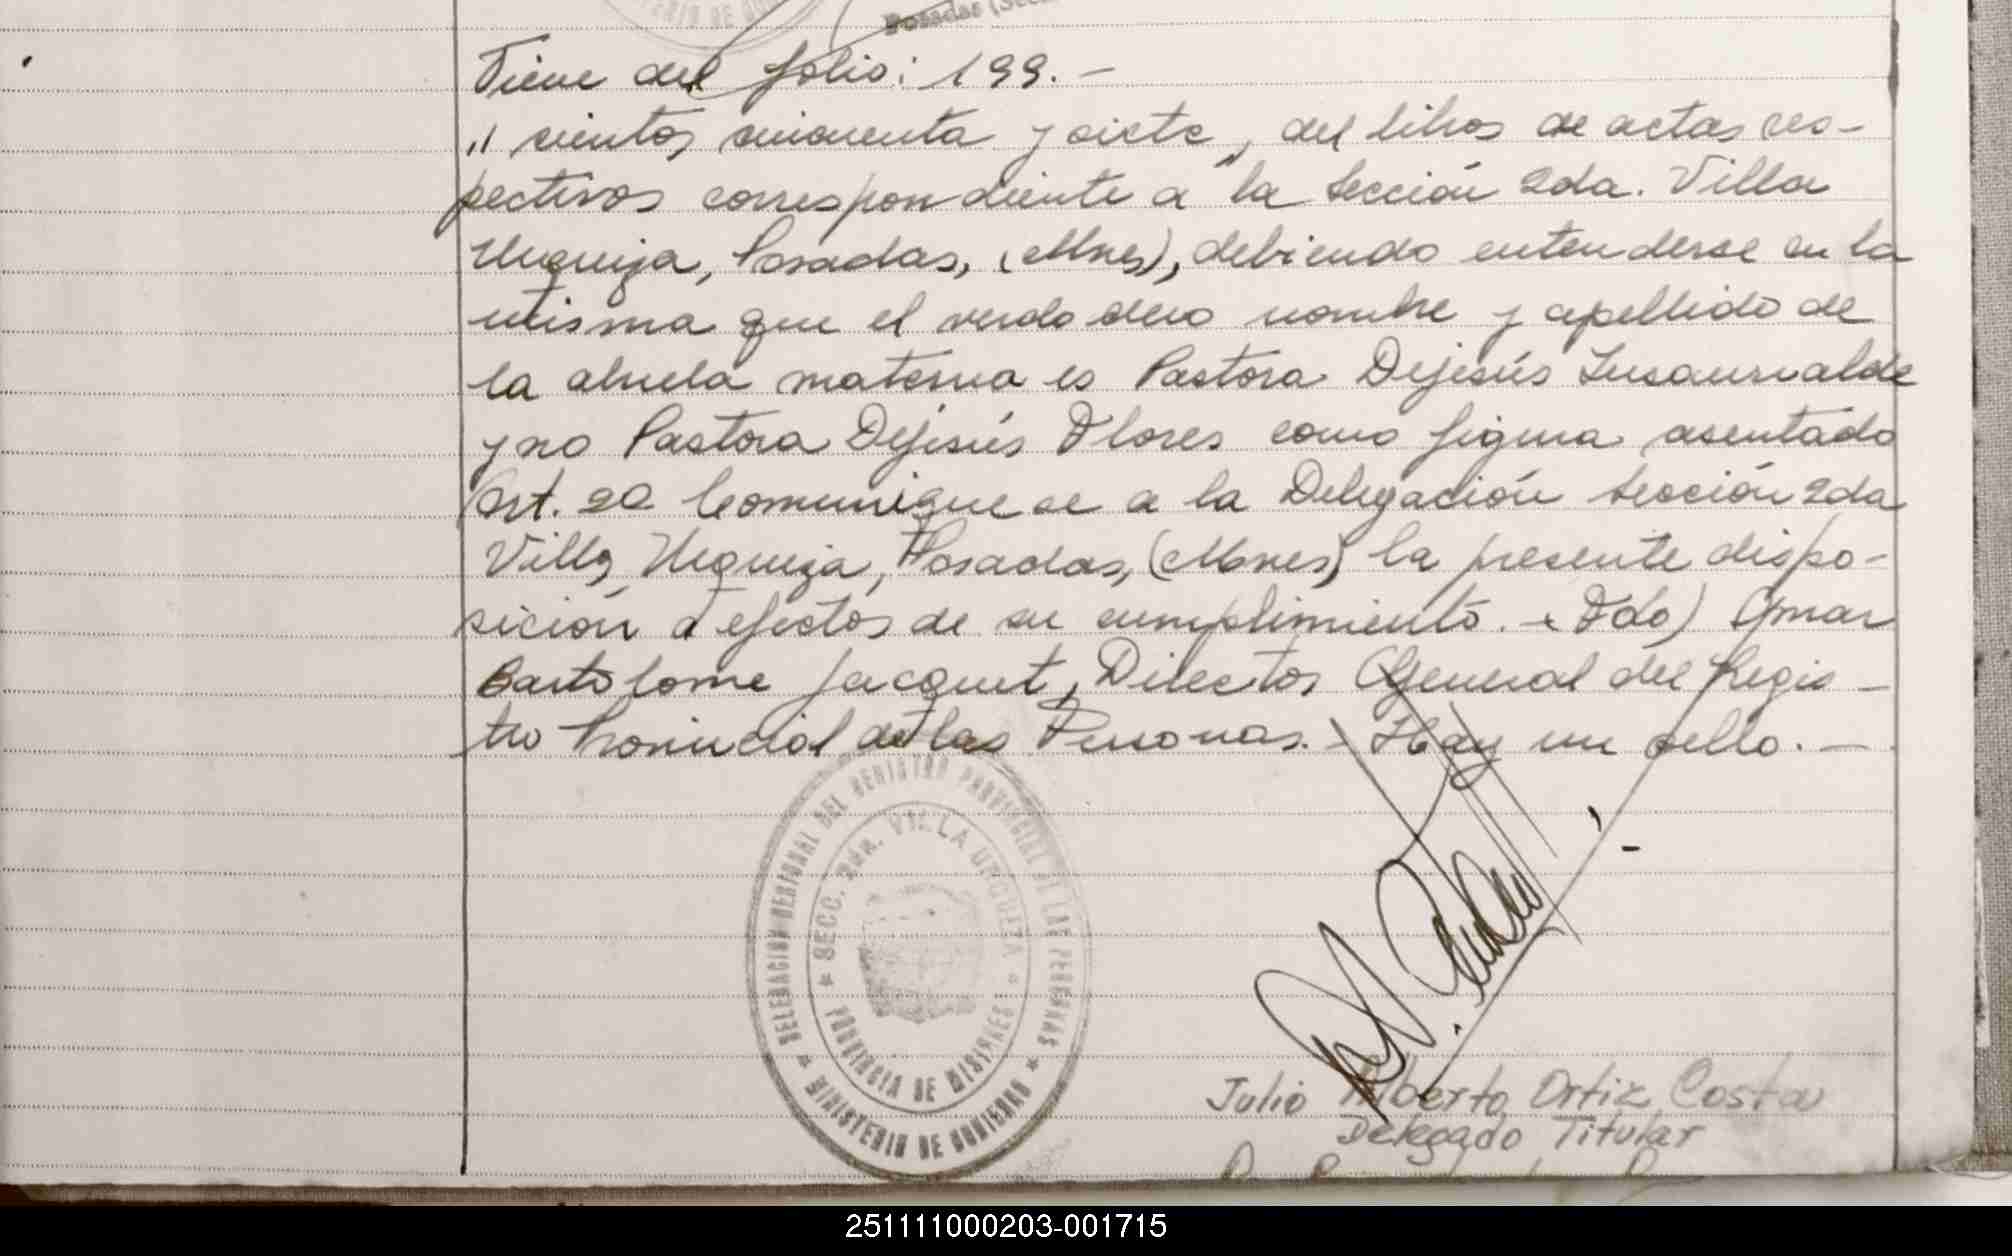 Posadas (Secc
Viene del folio: 199.-
" cientos cincuenta y siete", del libros de actas res-
pectivos correspondiente a la Sección 2da. Villa
Urquiza, Posadas, (Mnes), debiendo entenderse en la
misma que el verdadero nombre y apellido de
la abuela materna es Pastora Dejesús Insaurralde
y no Pastora Dejesús Flores como figura asentado
Art. 2º Comuniquese a la Delegación Sección 2da
Villa Urquiza, Posadas, (Mnes) la presente dispo-
sición a efectos de su cumplimiento.- Fdo) Omar
Bartolome Jacquet, Director General del Regis-
tro Provincial de las Personas.- Hay un sello.-
DELEGACION REGIONAL DEL REGISTRO PROVINCIAL DE LAS PERSONAS
* SECC. 2DA. VILLA URQUIZA *
PROVINCIA DE MISIONES
* MINISTERIO DE GOBIERNO *
Julio Alberto Ortiz Costa
Delegado Titular
251111000203-001715